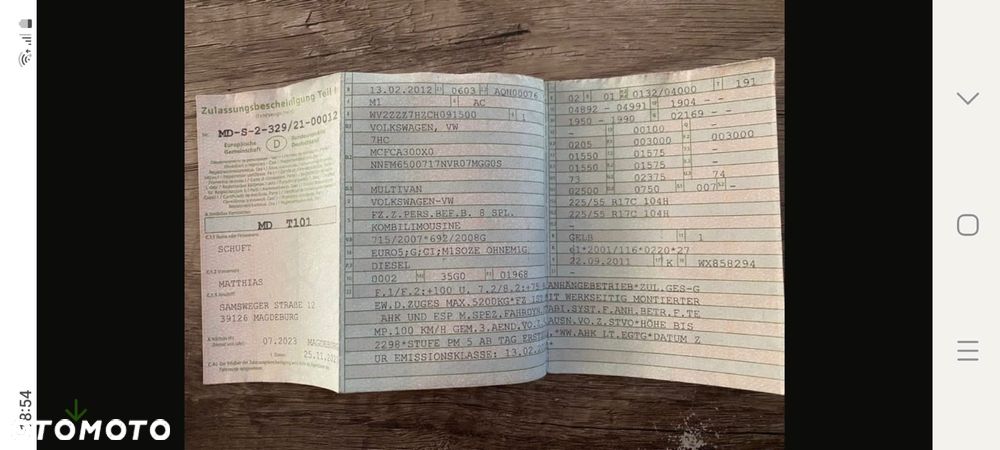 18:54
OTOMOTO
Zulassungsbescheinigung Teil I
Nr. MD-S-2-329/21-00012
Europäische Gemeinschaft
D
Bundesrepublik Deutschland
MD T101
SCHUFT
MATTHIAS
SAMSWEGER STRAßE 12
39126 MAGDEBURG
07.2023 MAGDEBURG
25.11.
13.02.2012 0603 AQN00076
M1 AC
WV2ZZZ7HZCH091500 1
VOLKSWAGEN, VW
7HC
MCFCA300X0
NNFM6500717NVR07MGG0S
MULTIVAN
VOLKSWAGEN-VW
FZ.Z.PERS.BEF.B. 8 SPL.
KOMBILIMOUSINE
715/2007*692/2008G
EURO5;G;CI;M1SOZE OHNEM1G
DIESEL
0002 35G0 01968
02 01 0132/04000 191
04892 - 04991 1904 - -
1950 - 1990 02169 - -
- 00100 -
0205 003000 003000
01550 01575 -
01550 01575 -
73 02375 74
02500 0750 007 -
225/55 R17C 104H
225/55 R17C 104H
-
GELB 1
e1*2001/116*0220*27
22.09.2011 K WX858294
-
F.1/F.2:+100 U. 7.2/8.2:+75 ANHÄNGEBETRIEB*ZUL.GES-G
EW.D.ZUGES MAX.5200KG*FZ IST MIT WERKSEITIG MONTIERTER
AHK UND ESP M.SPEZ.FAHRDYN.STABI.SYST.F.ANH.BETR.F.TE
MP.100 KM/H GEM.3.AEND.VO.Z.AUSN.VO.Z.STVO*HÖHE BIS
2298*STUFE PM 5 AB TAG ERSTZ.*WW.AHK LT.EGTG*DATUM Z
UR EMISSIONSKLASSE: 13.02.